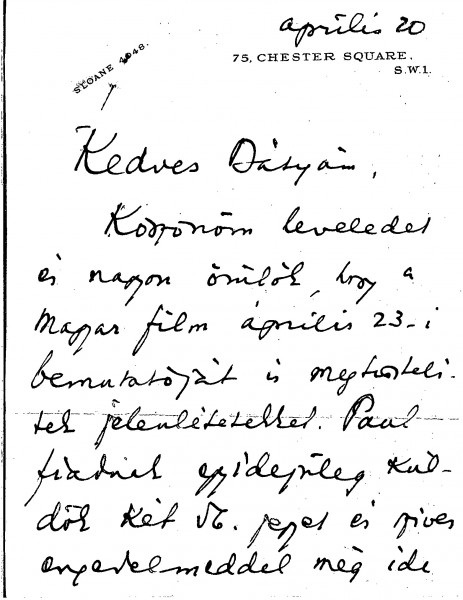 április 20
SLOANE 4048.
75, CHESTER SQUARE,
S.W.1.
Kedves Bátyám,
Köszönöm leveledet
és nagyon örülök, hogy a
Magyar film április 23-i
bemutatóját is megtiszteli-
tek jelenlétetekkel. Paul
fiadnak egyidejüleg kül-
dök két jegyet és szives
engedelmeddel még ide